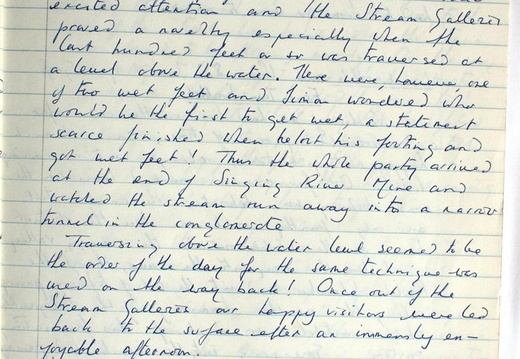 excited attention and the Stream Galleries
proved a novelty especially when the
last hundred feet or so was traversed at
a level above the water. There were, however, one
or two wet feet and Simon wondered who
would be the first to get wet, a statement
scarce finished when he lost his footing and
got wet feet! Thus the whole party arrived
at the end of Singing River Mine and
watched the stream run away into a narrow
tunnel in the conglomerate
Traversing above the water level seemed to be
the order of the day for the same technique was
used on the way back! Once out of the
Stream Galleries our happy visitors were led
back to the surface after an immensely en-
joyable afternoon.